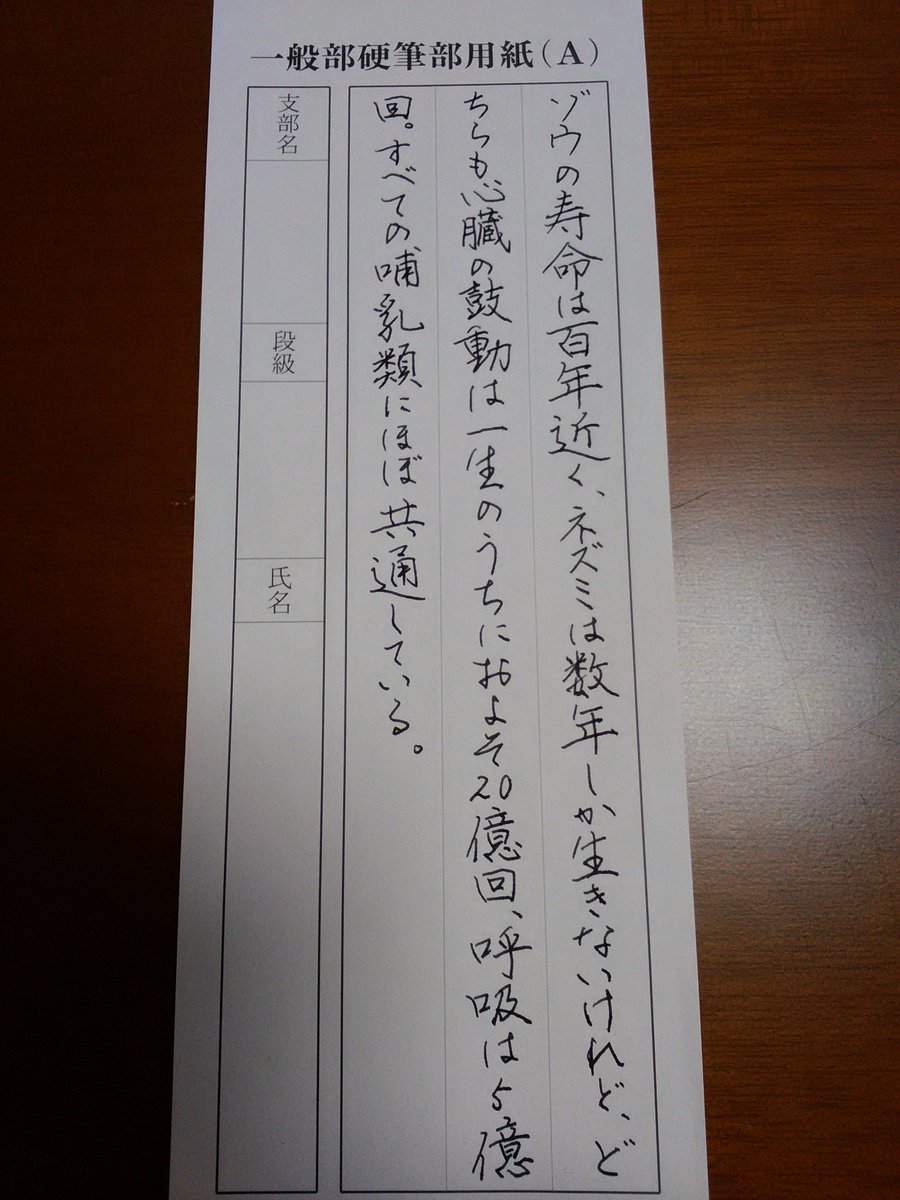 一般部硬筆部用紙(A)
ゾウの寿命は百年近く、ネズミは数年しか生きないけれど、ど
ちらも心臓の鼓動は一生のうちにおよそ20億回、呼吸は5億
回。すべての哺乳類にほぼ共通している。
支部名
段級
氏名